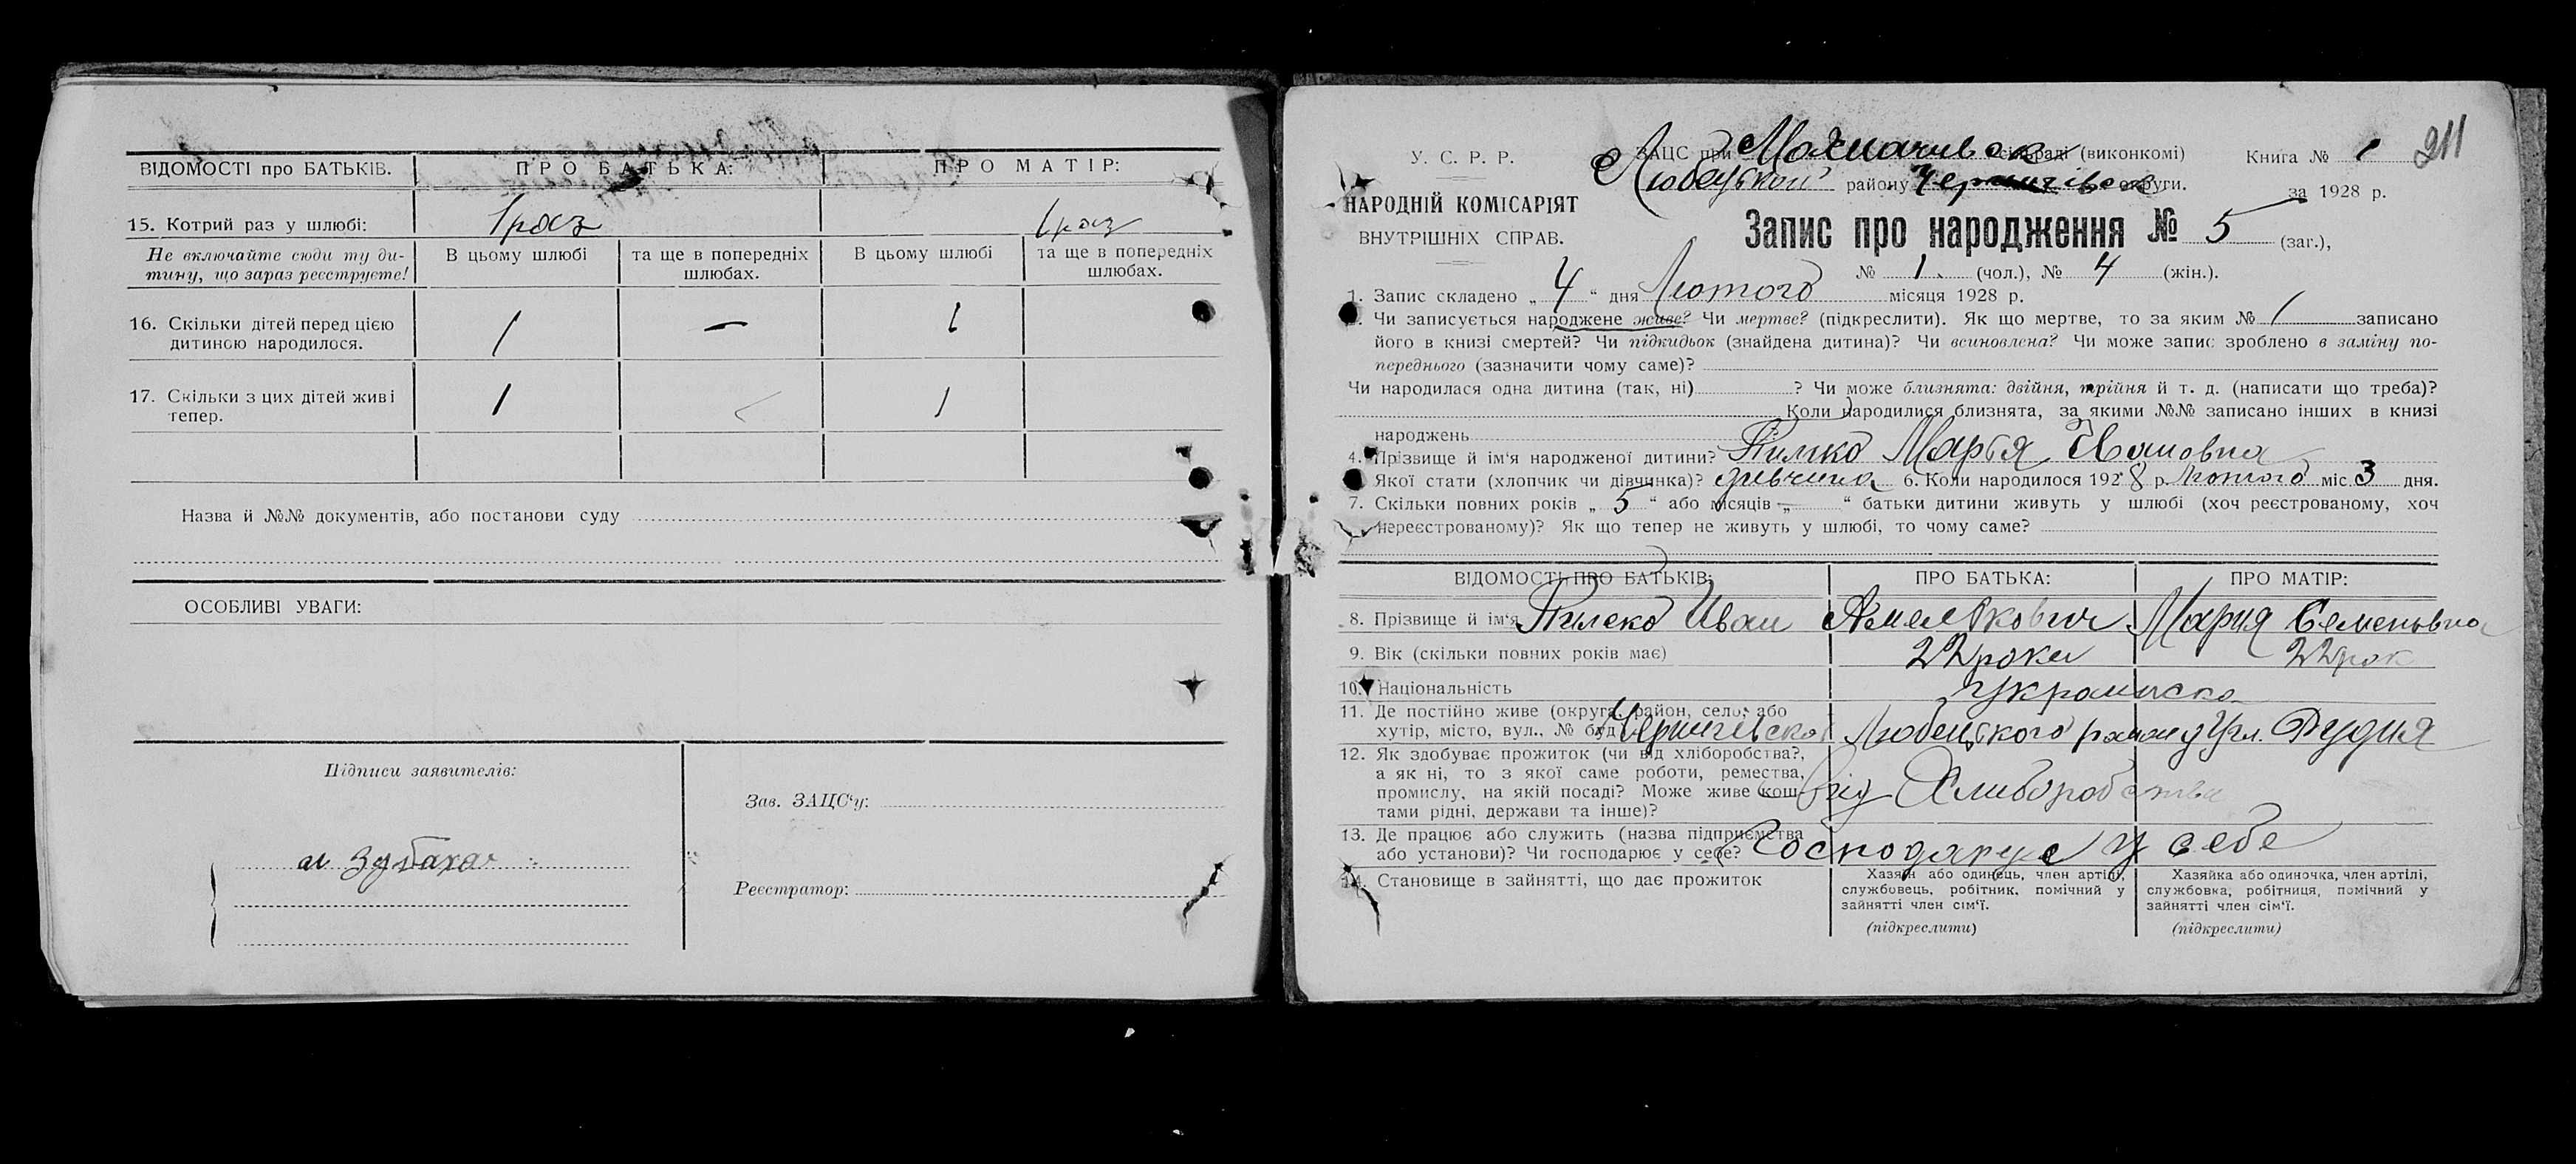 ВІДОМОСТІ про БАТЬКІВ. ПРО БАТЬКА: ПРО МАТІР:
15. Котрий раз у шлюбі: 1 раз 1 раз
Не включайте сюди ту ди-
тину, що зараз реєструєте!
В цьому шлюбі та ще в попередніх шлюбах. В цьому шлюбі та ще в попередніх шлюбах.
16. Скільки дітей перед цією 1 — 1
дитиною народилося.
17. Скільки з цих дітей живі 1 1
тепер.
Назва й №№ документів, або постанови суду
ОСОБЛИВІ УВАГИ:
Підписи заявителів:
Зав. ЗАЦС'у:
Реєстратор:
У. С. Р. Р.
НАРОДНІЙ КОМІСАРІЯТ
ВНУТРІШНІХ СПРАВ.
211
ЗАЦС при сільраді (виконкомі) Книга № 1
Любецькой району Чернигівскої округи. за 1928 р.
Запис про народження № 5 (заг.),
№ 1. (чол.), № 4 (жін.).
1. Запис складено „4“ дня Лютого місяця 1928 р.
Чи записується народжене живе? Чи мертве? (підкреслити). Як що мертве, то за яким № записано
його в книзі смертей? Чи підкидьок (знайдена дитина)? Чи всиновлена? Чи може запис зроблено в заміну по-
переднього (зазначити чому саме)?
Чи народилася одна дитина (так, ні) ? Чи може близнята: двійня, трійня й т. д. (написати що треба)?
Коли народилися близнята, за якими №№ записано інших в книзі
народжень
4. Прізвище й ім'я народженої дитини? Марья Ивановна
Якої стати (хлопчик чи дівчинка)? дивчина 6. Коли народилося 1928 р. Лютого міс. 3 дня.
7. Скільки повних років „5“ або місяців „—“ батьки дитини живуть у шлюбі (хоч реєстрованому, хоч
нереєстрованому)? Як що тепер не живуть у шлюбі, то чому саме?
ВІДОМОСТЬ ПРО БАТЬКІВ: ПРО БАТЬКА: ПРО МАТІР:
8. Прізвище й ім'я Иван Мария Семеновна
9. Вік (скільки повних років має) 22 роки 22 рок
10. Національність Украинска
11. Де постійно живе (округа, район, село, або
хутір, місто, вул., № буд Чернигівска Любецкого району Рудня
12. Як здобуває прожиток (чи від хліборобства?,
а як ні, то з якої саме роботи, ремества,
промислу, на якій посаді? Може живе кош- від Хлиборобства
тами рідні, держави та інше)?
13. Де працює або служить (назва підприємства
або установи)? Чи господарює у себе? Господарує у себе
14. Становище в зайнятті, що дає прожиток
Хазяїн або одинець, член артілі,
службовець, робітник, помічний у
зайнятті член сім'ї.
(підкреслити)
Хазяйка або одиночка, член артілі,
службовка, робітниця, помічний у
зайнятті член сім'ї.
(підкреслити)